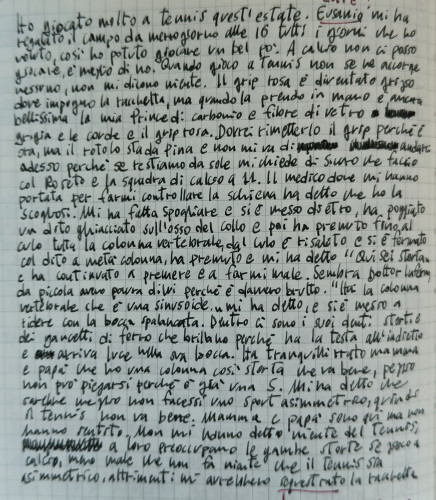 Ho giocato molto a tennis quest'estate. Eusanio mi ha
regalato il campo da mezzogiorno alle 16 tutti i giorni che ho
voluto, così ho potuto giocare un bel po'. A calcio non ci posso
giocare, è meglio di no. Quando gioco a tennis non se ne accorge
nessuno, non mi dicono niente. Il grip rosa è diventato grigio
dove impugno la racchetta, ma quando la prendo in mano è ancora
bellissima la mia Prince di carbonio e fibre di vetro
grigia e le corde e il grip rosa. Dovrei rimetterlo il grip perché è
ora, ma il rotolo sta da Pina e non mi va di andare
adesso perché se restiamo da sole mi chiede di nuovo che faccio
col Roseto e la squadra di calcio a 11. Il medico dove mi hanno
portata per farmi controllare la schiena ha detto che ho la
scogliosi. Mi ha fatta spogliare e si è messo dietro, ha poggiato
un dito ghiacciato sull'osso del collo e poi ha premuto fino al
culo tutta la colonna vertebrale, dal culo è risalito e si è fermato
col dito a metà colonna, ha premuto e mi ha detto "Qui sei storta"
e ha continuato a premere e a farmi male. Sembra Dottor
da piccola avevo paura di lui perché è davvero brutto. "Hai la colonna
vertebrale che è una sinusoide" mi ha detto, e si è messo a
ridere con la bocca spalancata. Dentro ci sono i suoi denti storti e
dei gancetti di ferro che brillano perché ha la testa all'indietro
e arriva luce nella sua bocca. Ha tranquillizzato mamma
e papà che ho una colonna così storta che va bene, peggio
non può piegarsi perché è già una S. Mi ha detto che
sarebbe meglio non facessi uno sport asimmetrico, quindi
il tennis non va bene. Mamma e papà sono qui ma non
hanno sentito. Non mi hanno detto niente del tennis,
a loro preoccupano le gambe storte se gioco a
calcio, meno male che non fa niente che il tennis sia
asimmetrico, altrimenti mi avrebbero sequestrato la racchetta